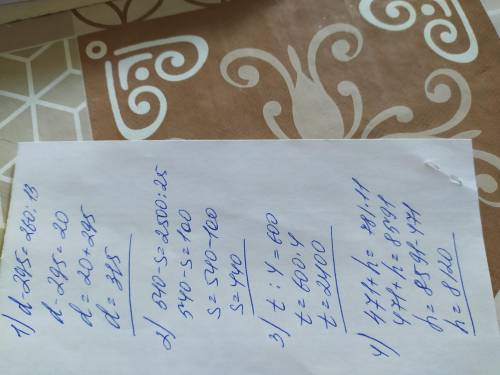 1) d-295=260:13
d-295=20
d=20+295
d=315
2) 540-s=2500:25
540-s=100
s=540-100
s=440
3) t:4=600
t=600·4
t=2400
4) 471+h=781·11
471+h=8591
h=8591-471
h=8120